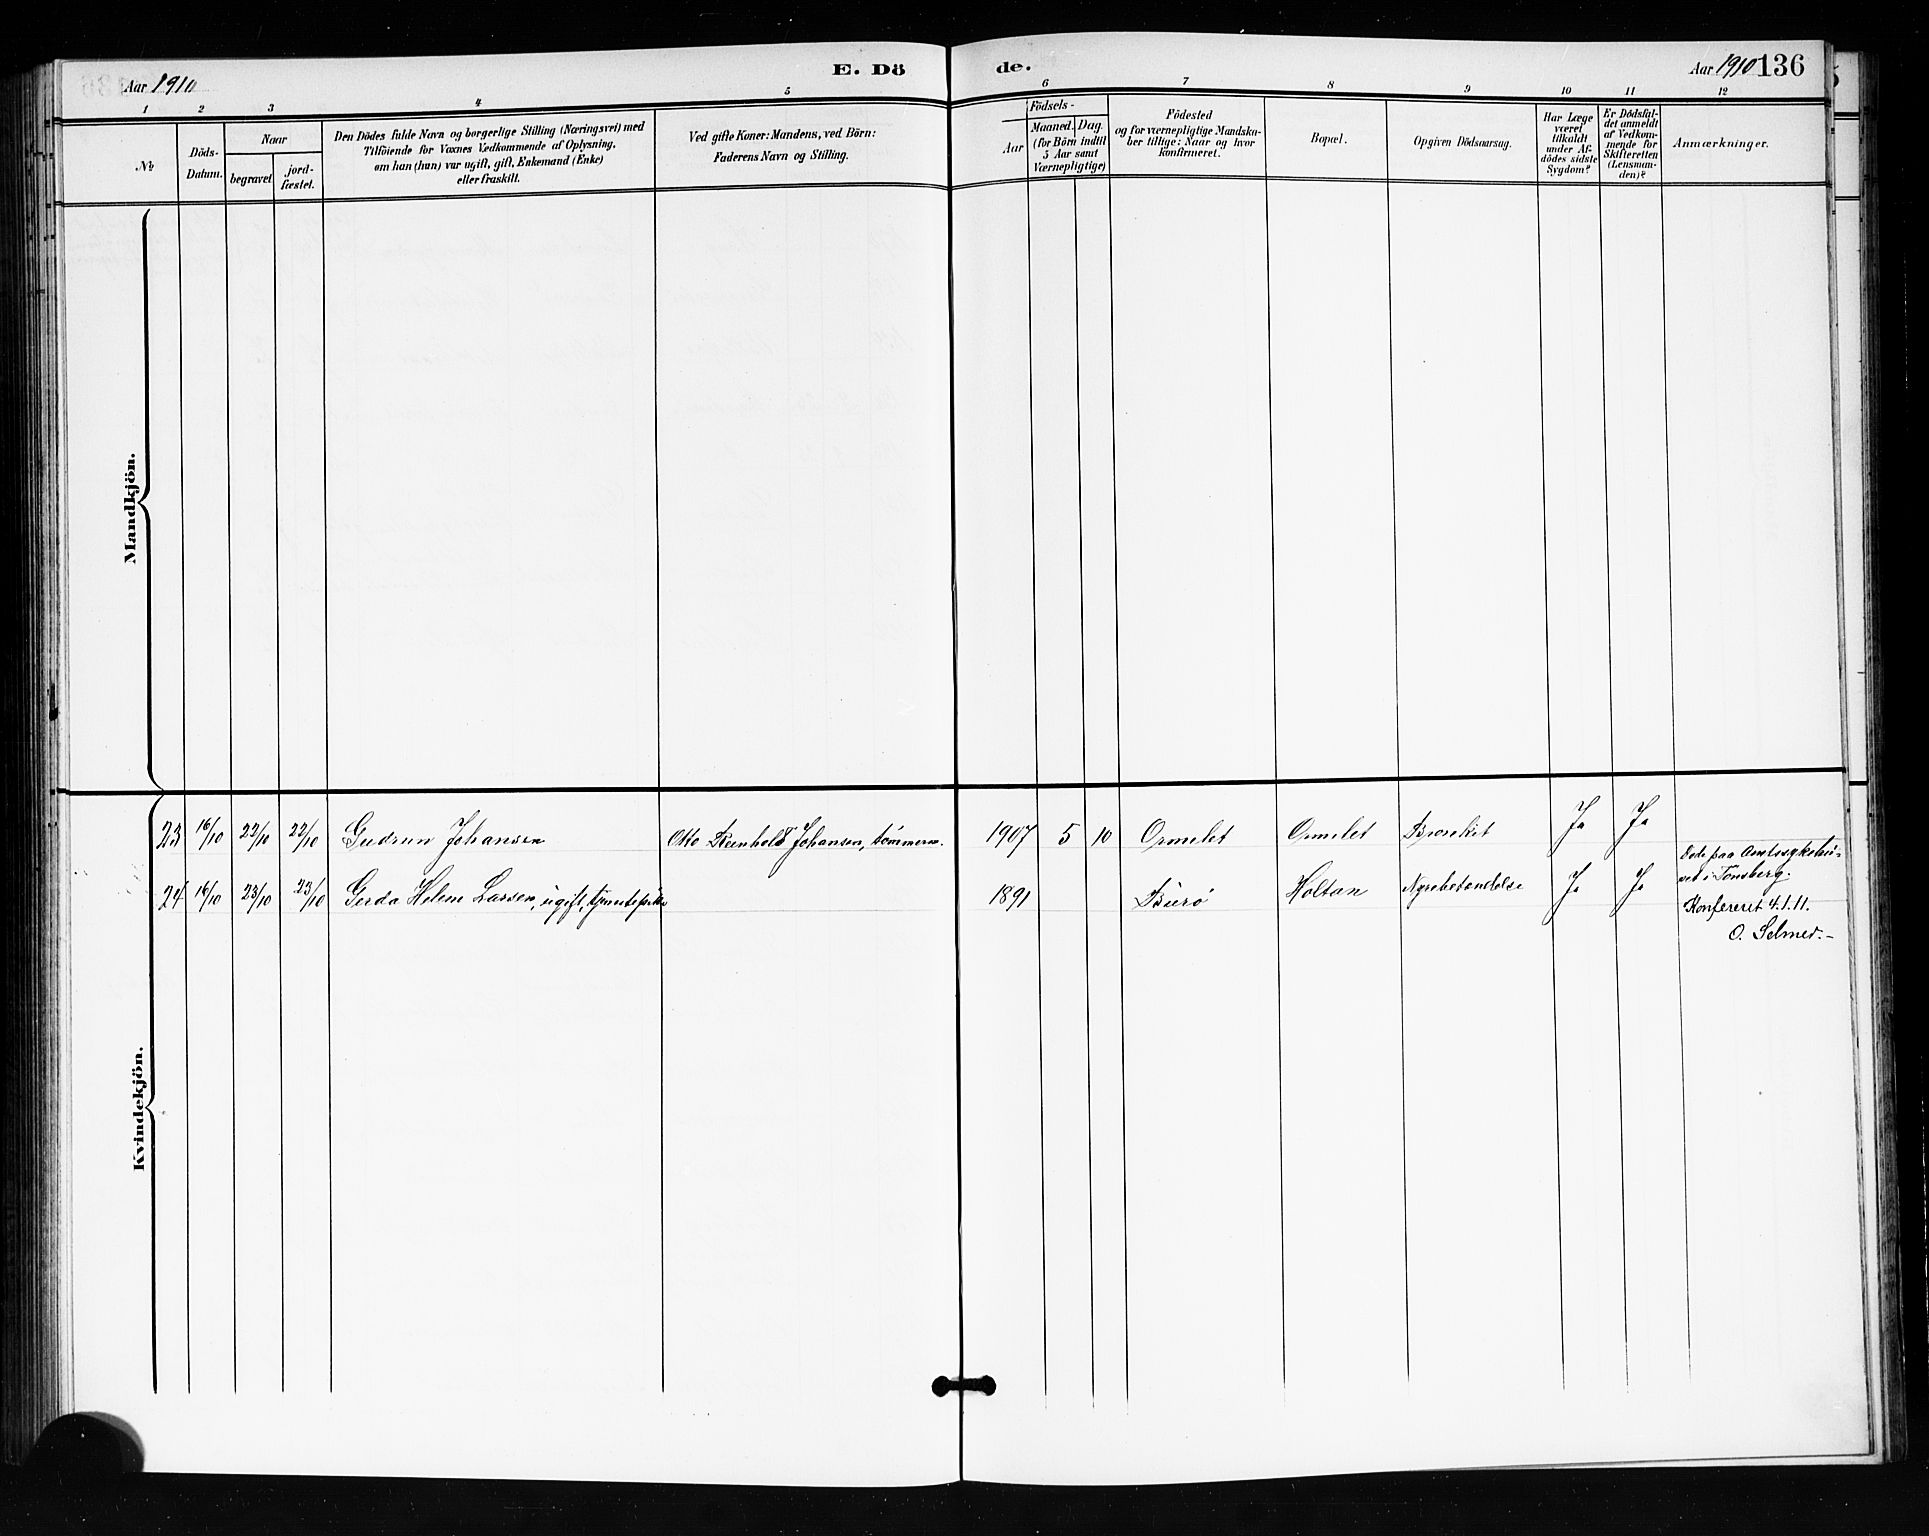 Aar 1910
E. Dö
de.
Aar 1910 136
1 2 3 4 5 6 7 8 9 10 11 12
№
Döds-
Datum.
Naar
begravet
jord-
fæstet.
Den Dödes fulde Navn og borgerlige Stilling (Næringsvei) med
Tilföiende for Voxnes Vedkommende af Oplysning,
om han (hun) var ugift, gift, Enkemand (Enke)
eller fraskilt.
Ved gifte Koner: Mandens, ved Börn:
Faderens Navn og Stilling.
Födsels-
Aar
Maaned. Dag.
(for Börn indtil
5 Aar samt
Værnepligtige)
Födested
og for værnepligtige Mandska-
ber tillige: Naar og hvor
konfirmeret.
Bopæl.
Opgiven Dödsaarsag.
Har Læge
været
tilkaldt
under Af-
dödes sidste
Sygdom?
Er Dödsfal-
det anmeldt
af Vedkom-
mende for
Skifteretten
(Lensman-
den)?
Anmærkninger.
Mandkjön.
Kvindekjön.
23 16/10 22/10 22/10 Gudrun Johansen Otto Reinhold Johansen, tömmerm. 1907 5 10 Ormelet Ormelet Bronkit Ja Ja
24 16/10 23/10 23/10 Gerda Helene Larsen, ugift, tjenestepike 1891 Buerø Holtan Nyrebetændelse Ja Ja
Døde paa Amtssykehu-
set i Tønsberg.
Konfereret 4.1.11.
O. Selmer.-